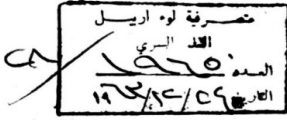 متصرفية لوء اربيل
القلم السري
العدد ١٩٦٥
التاريخ ٢٩/١٢/١٩٦٣